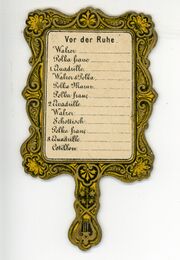 Vor der Ruhe
Walzer
Polka franc
1. Quadrille
Walzer & Polka
Polka Mazur.
Polka franc
2. Quadrille
Walzer
Schottisch
Polka franc
3. Quadrille
Cotillon